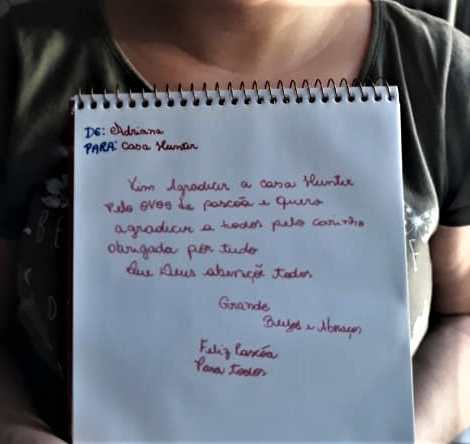 DE: Adriana
PARA: Casa Hunter
Vim Agradecer a casa Hunter
Pelo ovos de pascoa e Quero
agradecer a todos pelo carinho
obrigada por tudo
Que Deus abençõe todos
Grande
Beijos e Abraços
Feliz Pascóa
Para todos